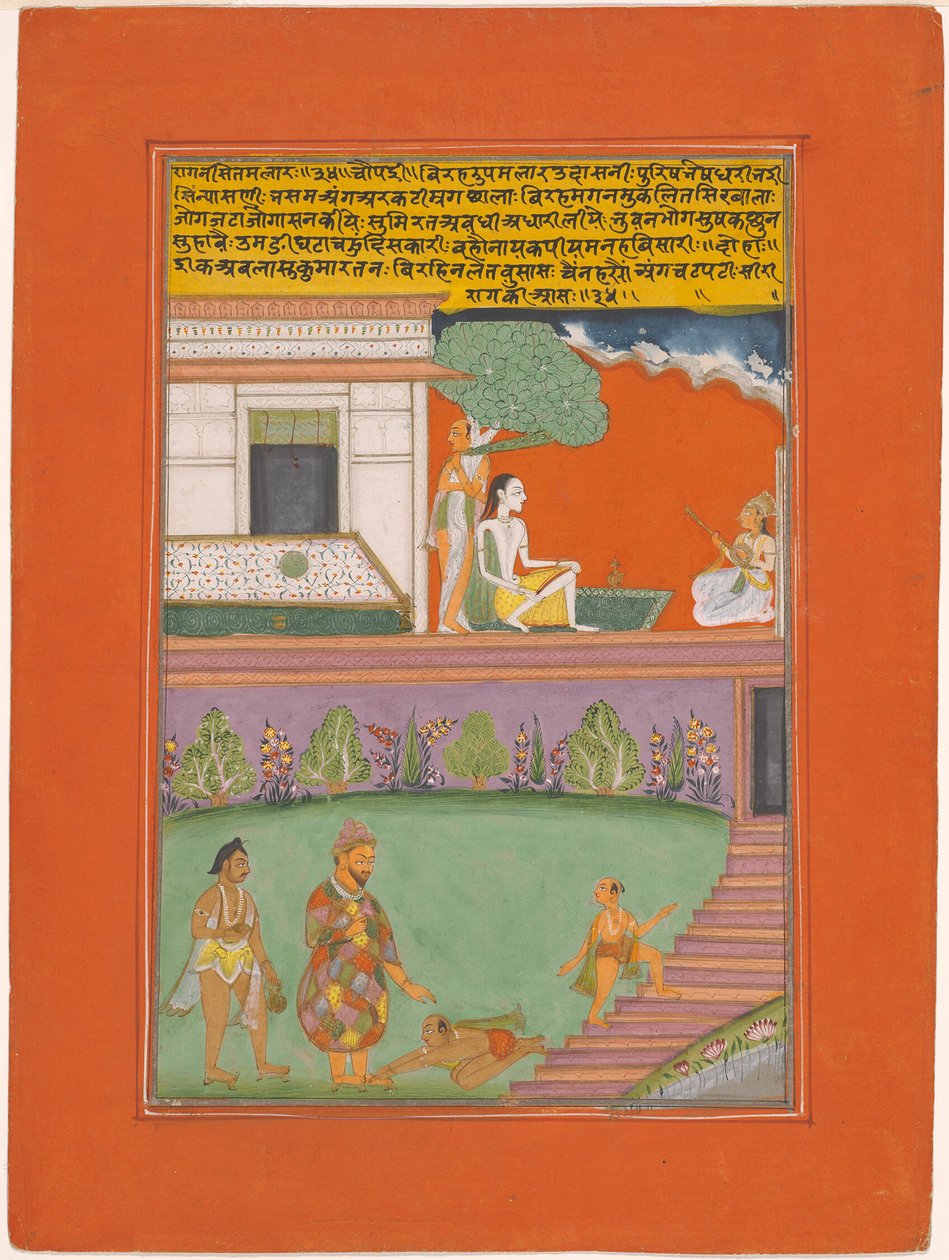 रागनी सित मलारः ॥३५॥ चौपई ॥ बिरह रुप मलार उदासनी: पुरिष भेष धरी
सिंन्यासणी: भसम अंग अर कटी मृग छालाः बिरह मगन मुकलित सिर बालाः
जोग जटा जोगासन कीयेः सुमिरत अवधी अधारी लीयेः भोग सुष
सुहावैः उमडी घटा चहु दिस कारीः बहौनायक पीय मनह बिसारीः ॥ दोहाः ॥
ईक अबला सुकुमार तनः बिरहिन लेत उसासः चैंन हरौं अंग चटपटीः सीरी
राग की आसः ॥३५॥ ॥ ॥